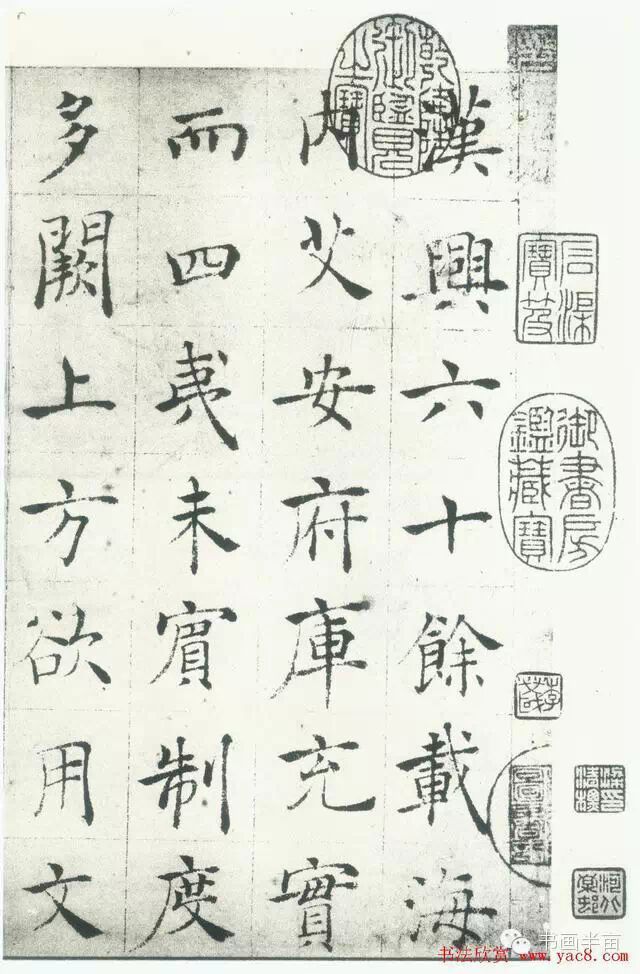 漢興六十餘載海
内艾安府庫充實
而四夷未賓制度
多闕上方欲用文
乾隆御覽之寶
石渠寶笈
御書房鑑藏寶
书画半亩
书法欣赏 www.yac8.com